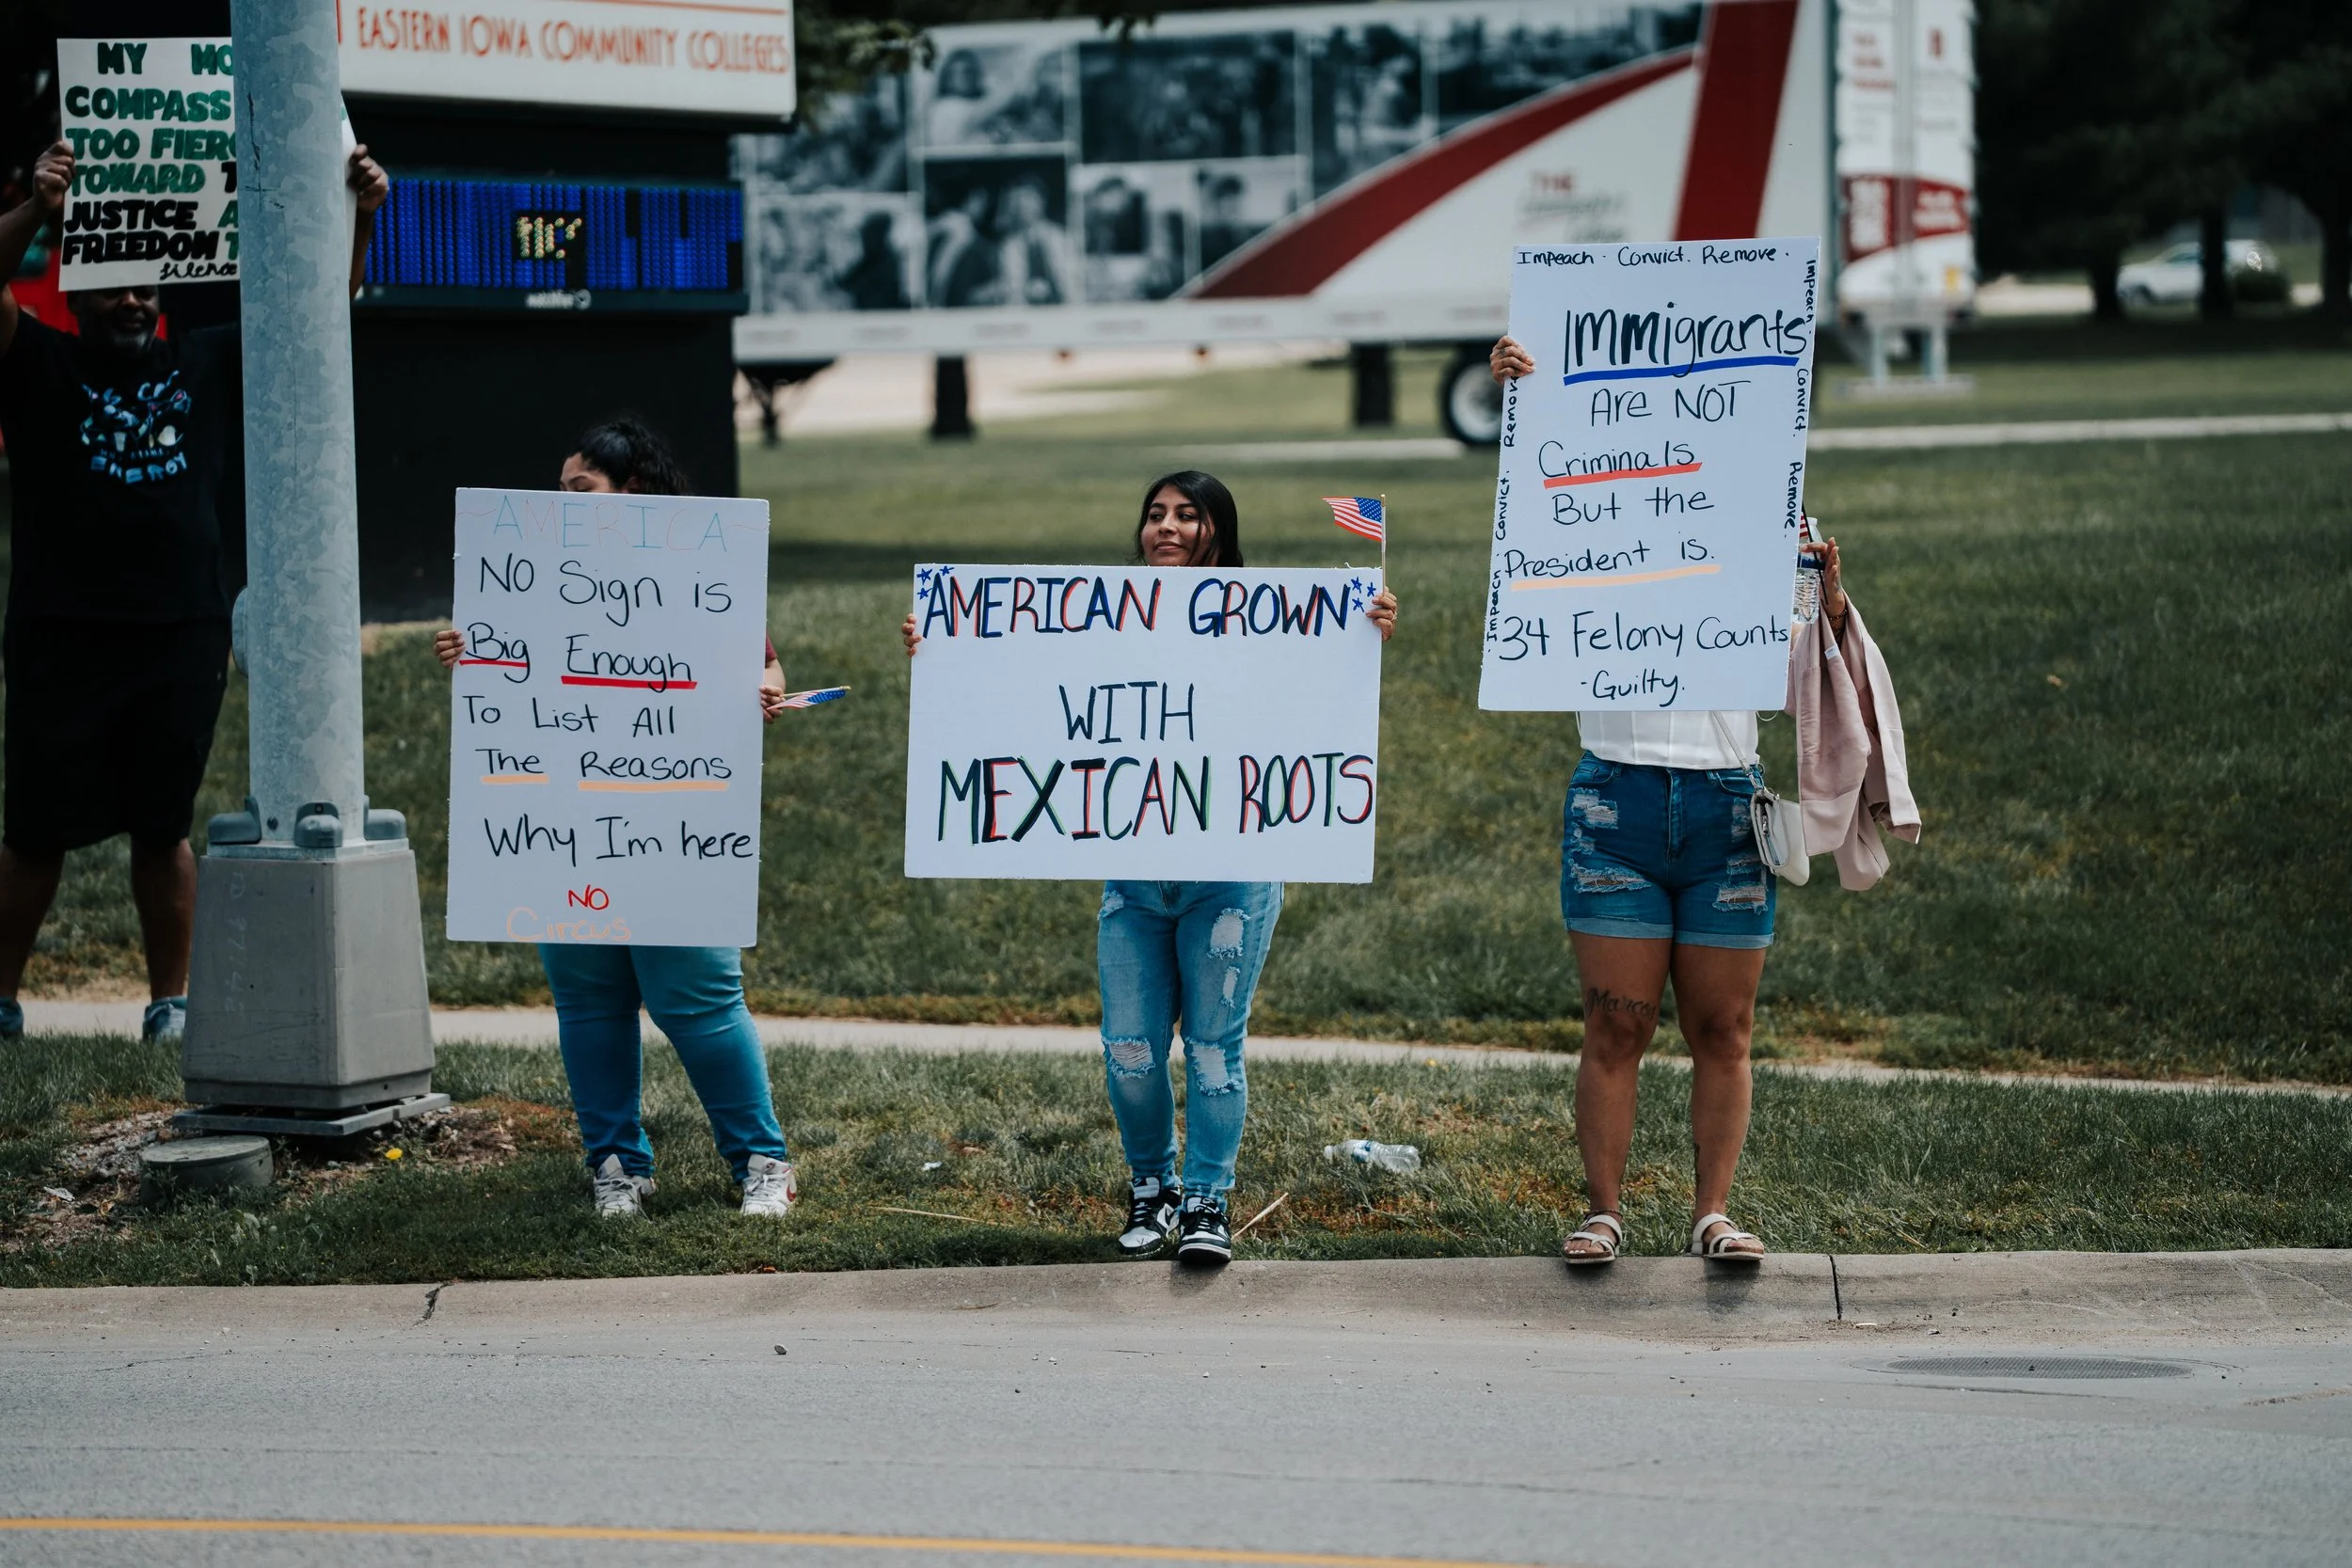 EASTERN IOWA COMMUNITY COLLEGES
MY
COMPASS
TOO
TOWARD
JUSTICE
FREEDOM
silence
ENERGY
AMERICA
NO Sign is
Big Enough
To List All
The Reasons
Why I'm here
NO
Circus
AMERICAN GROWN
WITH
MEXICAN ROOTS
THE
Impeach · Convict. Remove ·
Impeach · Convict. Remove.
Impeach · Convict. Remove
Immigrants
Are NOT
Criminals
But the
President is.
34 Felony Counts
-Guilty.